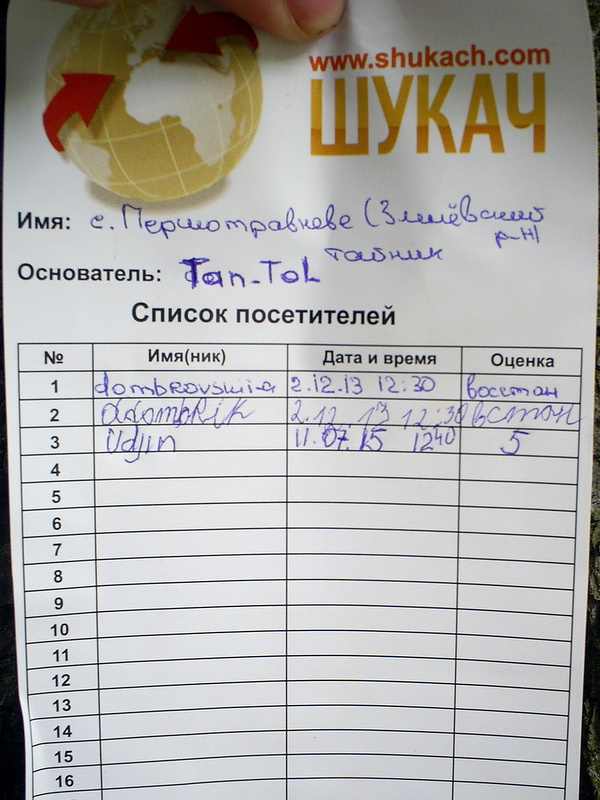 www.shukach.com
ШУКАЧ
Имя: с. Першотравневе (Змиёвский
р-н)
тайник
Основатель: Tan-Tol
Список посетителей
№ Имя(ник) Дата и время Оценка
1 dombrovskii-a 2.12.13 12:30 восстан
2 2.12.13 12:30 встан
3 Udjin 11.07.15 12 40 5
4
5
6
7
8
9
10
11
12
13
14
15
16